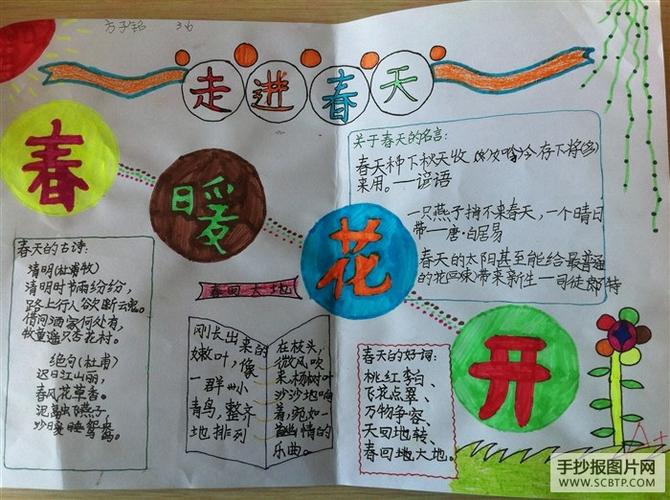 方子铭 36
走进春天
春
暖
花
开
关于春天的名言:
春天种下秋天收
来用。——谚语
一只燕子捎不来春天,一个晴日
带—唐·白居易
春天的太阳甚至能给最普通
的花朵带来新生—司徒
特
春天的古诗:
清明(杜牧)
清明时节雨纷纷,
路上行人欲断魂。
借问酒家何处有,
牧童遥
杏花村。
绝句(杜甫)
迟日江山丽,
春风花草香。
泥融
燕子,
沙暖睡鸳鸯。
春回大地
刚长出来的
嫩叶,像
一群小
鸟,整齐
地排列
在枝头,
微风吹
来,杨树叶
沙沙地响
着,宛如一
首幽情的
乐曲。
春天的好词:
桃红李白、
飞花点翠、
万物争容、
天回地转、
春回地大地。
A+
手抄报图片网
WWW.SCBTP.COM